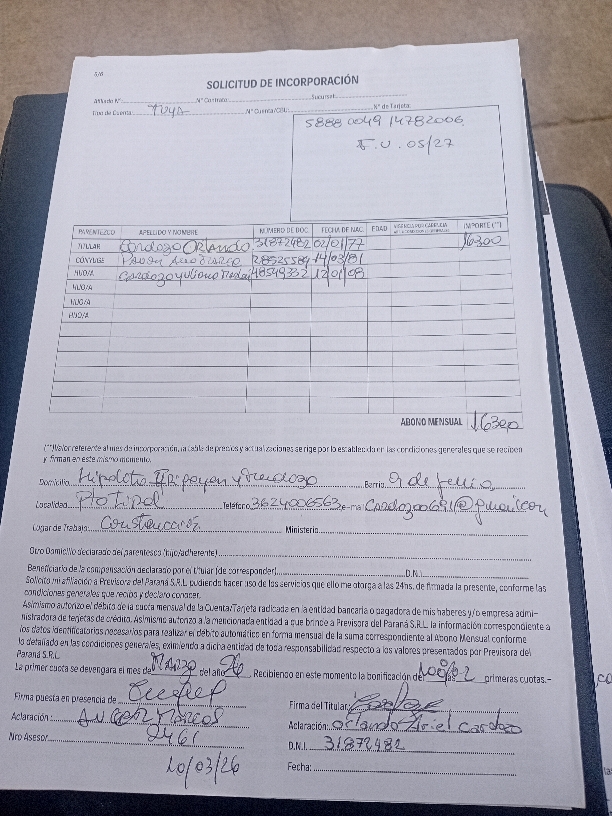 5/6
SOLICITUD DE INCORPORACIÓN
Afiliado Nº: Nº Contrato: Sucursal:
Tipo de Cuenta: Tuya Nº Cuenta/CBU: Nº de Tarjeta:
5888 0049 14782006
F.V. 05/27
PARENTEZCO APELLIDO Y NOMBRE NUMERO DE DOC FECHA DE NAC EDAD IMPORTE (**)
TITULAR Cardozo ORLANDO 31872482 02/01/77 $6300
CONYUGE 28525589 14/03/81
HIJO/A Cardozo 48549332 12/01/08
HIJO/A
HIJO/A
HIJO/A
ABONO MENSUAL $6300
(**)Valor referente al mes de incorporación, la tabla de precios y actualizaciones se rige por lo establecido en las condiciones generales que se reciben
y firman en este mismo momento.
Domicilio Hipolito Irigoyen y Mendozo Barrio 9 de Julio
Localidad Pto Tirol Teléfono 3624006563 e-mail Cardozoo691@gmail.com
Lugar de Trabajo Ministerio
Otro Domicilio declarado del parentesco (hijo/adherente)
Beneficiario de la compensación declarado por el titular (de corresponder) D.N.I.
Solicito mi afiliación a Previsora del Paraná S.R.L. pudiendo hacer uso de los servicios que ello me otorga a las 24hs. de firmada la presente, conforme las
condiciones generales que recibo y declaro conocer.
Asimismo autorizo el débito de la cuota mensual de la Cuenta/Tarjeta radicada en la entidad bancaria o pagadora de mis haberes y/o empresa admi-
nistradora de tarjetas de crédito. Asimismo autorizo a la mencionada entidad a que brinde a Previsora del Paraná S.R.L. la información correspondiente a
los datos identificatorios necesarios para realizar el débito automático en forma mensual de la suma correspondiente al Abono Mensual conforme
lo detallado en las condiciones generales, eximiendo a dicha entidad de toda responsabilidad respecto a los valores presentados por Previsora del
Paraná S.R.L.
La primer cuota se devengara el mes de MARZO del año 26 Recibiendo en este momento la bonificación de primeras cuotas.-
Firma puesta en presencia de Firma del Titular:
Aclaración: MARCOS Aclaración: Orlando Ariel Cardozo
Nro Asesor 2461 D.N.I. 31872482
10/03/26 Fecha: